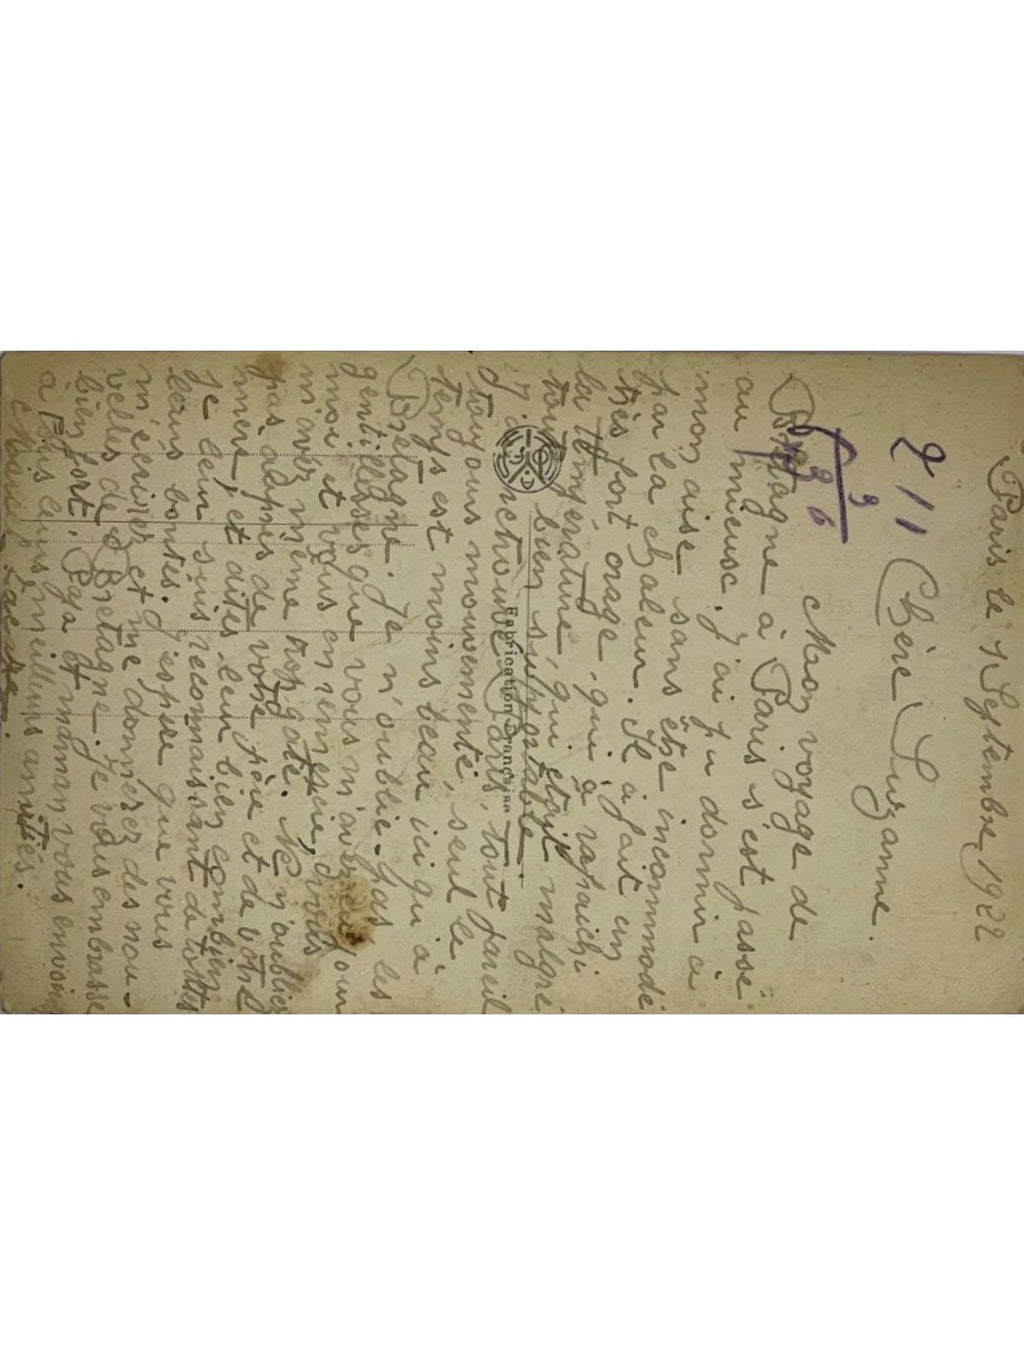 Paris le 1 Septembre 1922
Chère Suzanne.
Mon voyage de
Bretagne à Paris s'est passé
au mieux. J'ai pu dormir à
mon aise sans être incommodé
par la chaleur. Il a fait un
très fort orage, qui à rafraichi
la température, qui était malgré
tout bien supportable.
J'ai retrouvé Paris, tout pareil
toujours mouvementé, seul le
temps est moins beau ici qu'à
Bretagne. Je n'oublie pas les
gentillesses que vous n'avez eu pour
moi et vous en remercie, vous
m'avez même trop gâté. Ne m'oubliez
pas auprès de votre père et de votre
mère, et dites leur bien combien
je leur suis reconnaissant de toutes
leurs bontés. J'espère que vous
m'écrirez et me donnerez des nou-
velles de Bretagne. Je vous embrasse
bien fort. Papa et maman vous envoie
à tous leurs meilleurs amitiés.
211
3
36
Fabrication Française